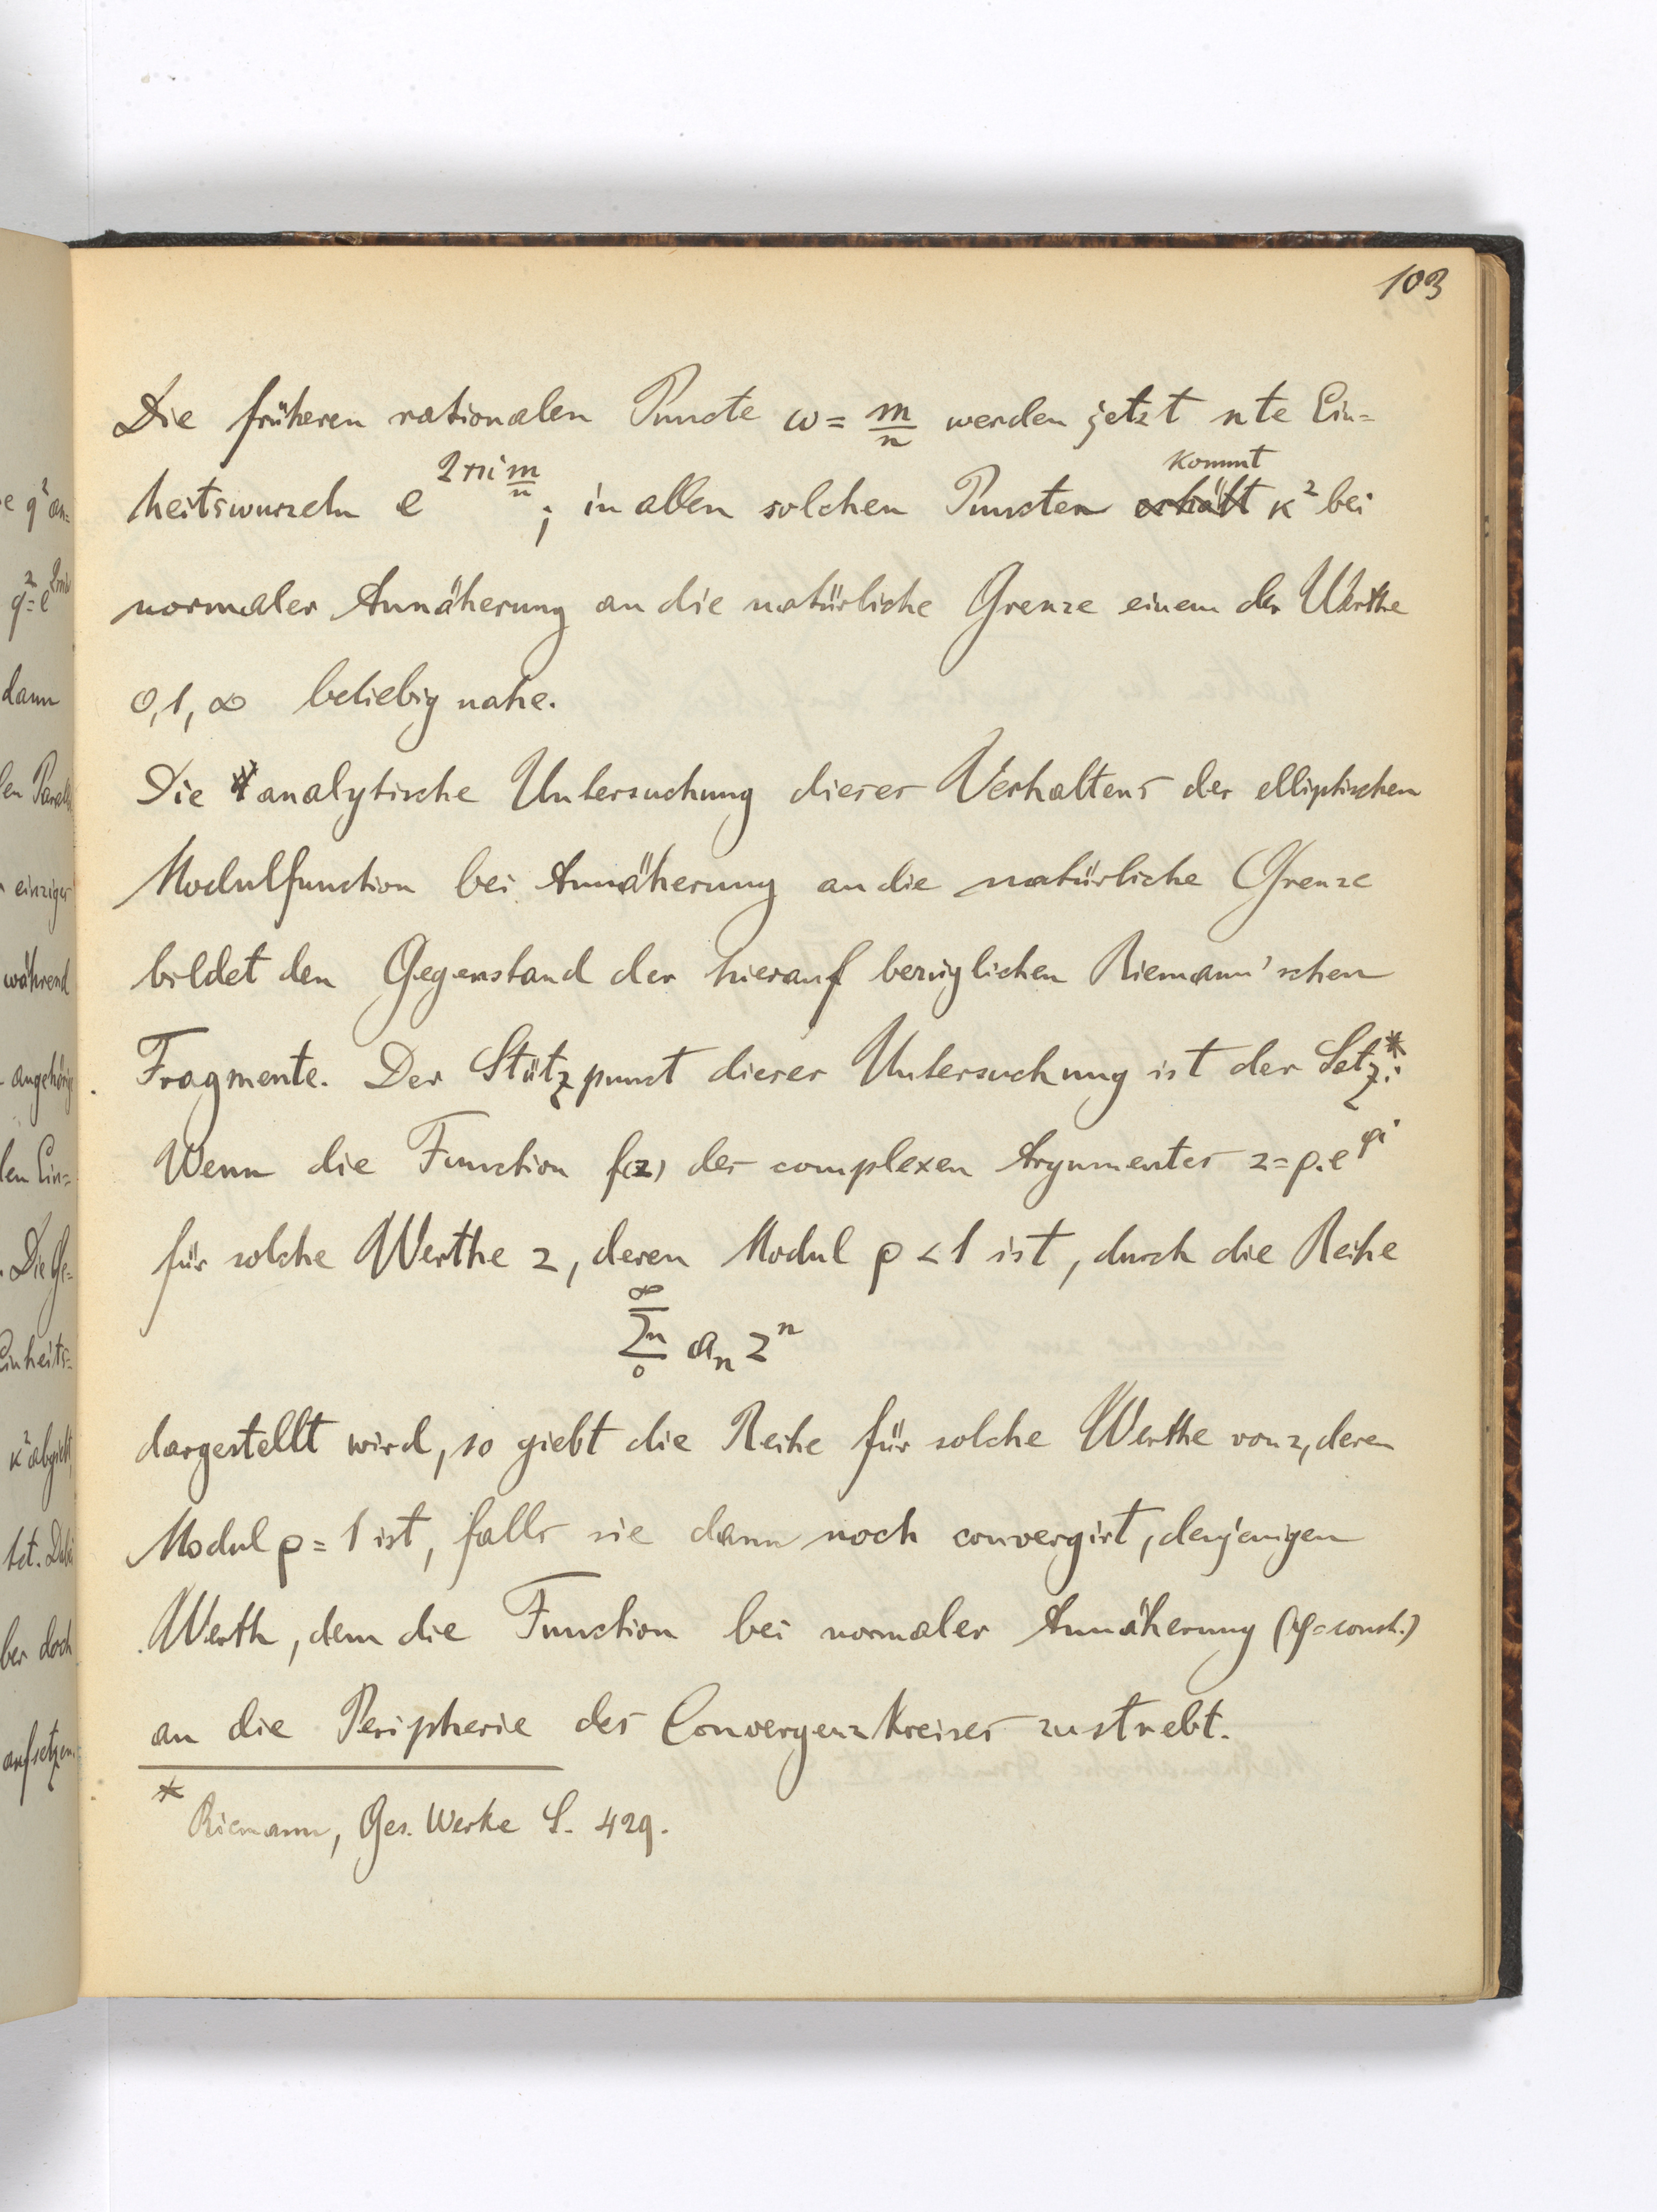 103
Die früheren rationalen Puncte ω = m/n werden jetzt nte Ein=
heitswurzeln e^{2πi m/n}; in allen solchen Puncten erhält kommt κ² bei
normaler Annäherung an die natürliche Grenze einem der Werthe
0, 1, ∞ beliebig nahe.
Die analytische Untersuchung dieses Verhaltens der elliptischen
Modulfunction bei Annäherung an die natürliche Grenze
bildet den Gegenstand der hierauf bezüglichen Riemann'schen
Fragmente. Der Stützpunct dieser Untersuchung ist der Satz*:
Wenn die Function f(z) des complexen Argumentes z = ρ.e^{φi}
für solche Werthe z, deren Modul ρ < 1 ist, durch die Reihe
∞
Σn aₙ zⁿ
0
dargestellt wird, so giebt die Reihe für solche Werthe von z, deren
Modul ρ = 1 ist, falls sie dann noch convergirt, denjenigen
Werth, dem die Function bei normaler Annäherung (φ = const.)
an die Peripherie des Convergenzkreises zustrebt.
* Riemann, Ges. Werke S. 429.
e q² an=
q² = e
dann
einziger
während
angehörige
len Ein=
. Die Ge=
Einheits=
κ² abgiebt,
ber doch
aufsetzen